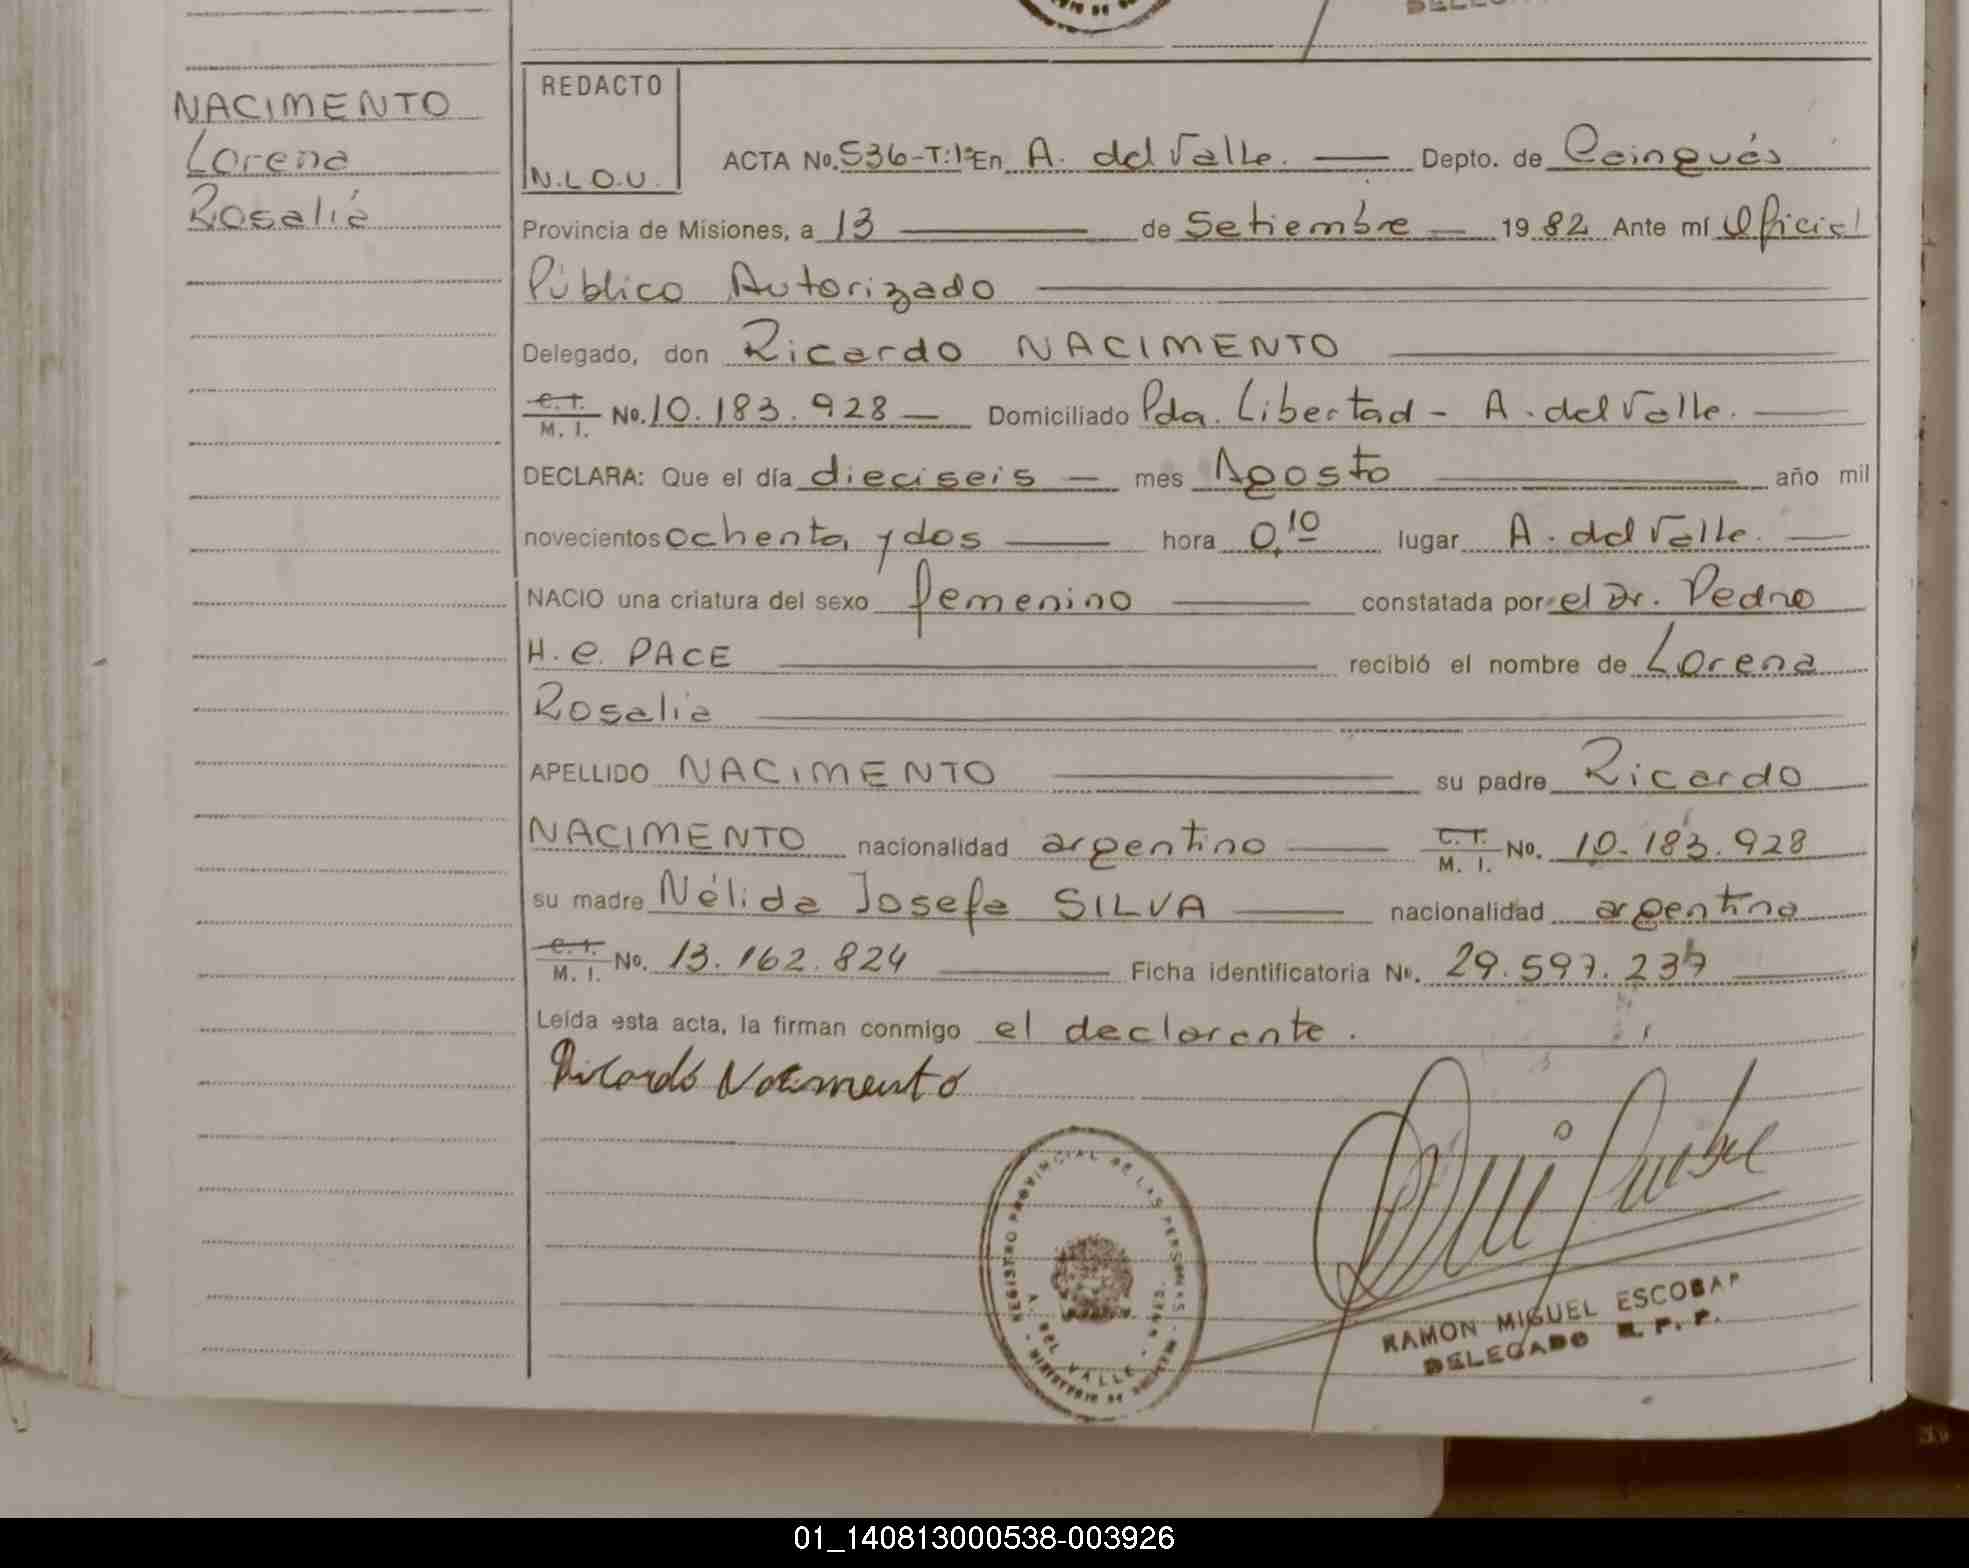 NACIMENTO
Lorena
Rosalía
REDACTO
N.L.O.U.
ACTA No. 536-T:1º En A. del Valle. Depto. de Cainguás
Provincia de Misiones, a 13 de Setiembre 1982 Ante mí Oficial
Público Autorizado
Delegado, don Ricardo NACIMENTO
C.I. M. I. No. 10.183.928 Domiciliado Pda. Libertad - A. del Valle.
DECLARA: Que el día dieciseis mes Agosto año mil
novecientos ochenta y dos hora 0,10 lugar A. del Valle.
NACIO una criatura del sexo femenino constatada por el Dr. Pedro
H. C. PACE recibió el nombre de Lorena
Rosalía
APELLIDO NACIMENTO su padre Ricardo
NACIMENTO nacionalidad argentino C.I. M. I. No. 10.183.928
su madre Nélida Josefa SILVA nacionalidad argentina
C.I. M. I. No. 13.162.824 Ficha identificatoria No. 29.597.
Leída esta acta, la firman conmigo el declarante.
Ricardo Nacimento
REGISTRO PROVINCIAL DE LAS PERSONAS
A. DEL VALLE
MINISTERIO DE
RAMON MIGUEL ESCOBAR
DELEGADO R. P. P.
01_140813000538-003926